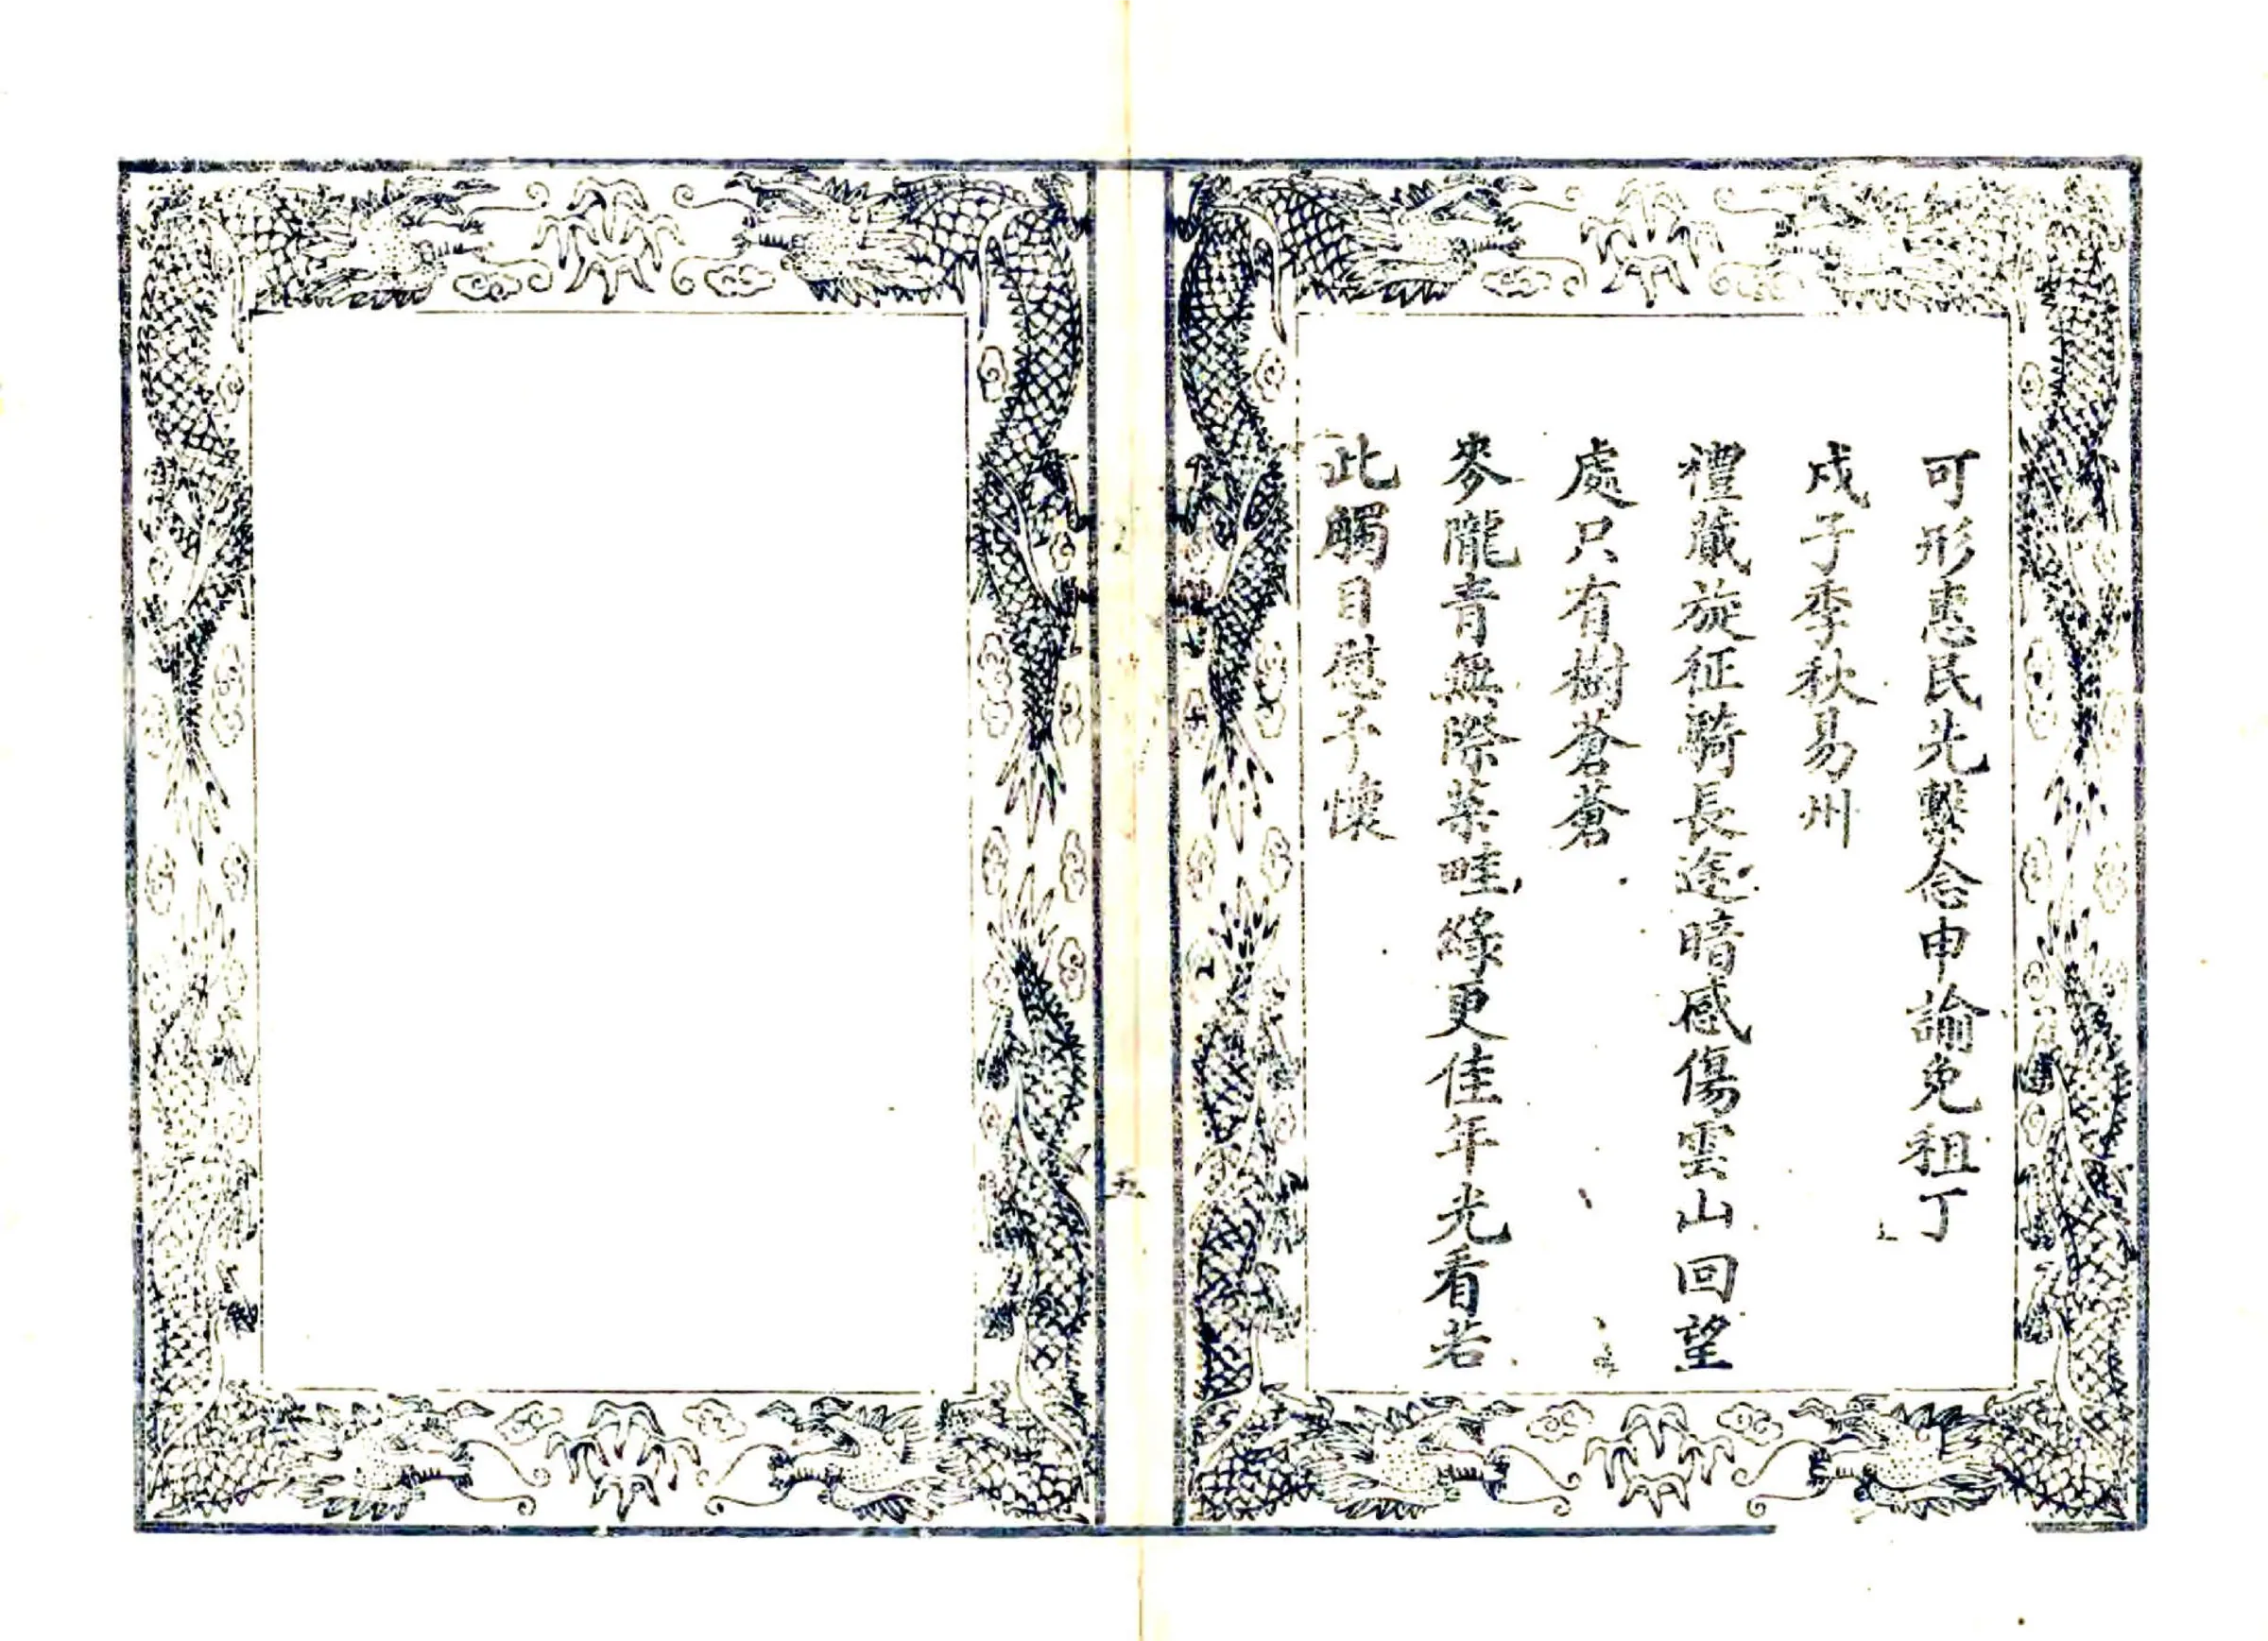 可形惠民先繫念申諭免租丁
戊子季秋易州
禮蕆旋征騎長途暗感傷雲山回望
處只有樹蒼蒼
麥隴青無際菜畦綠更佳年光看若
此觸目慰予懷
五